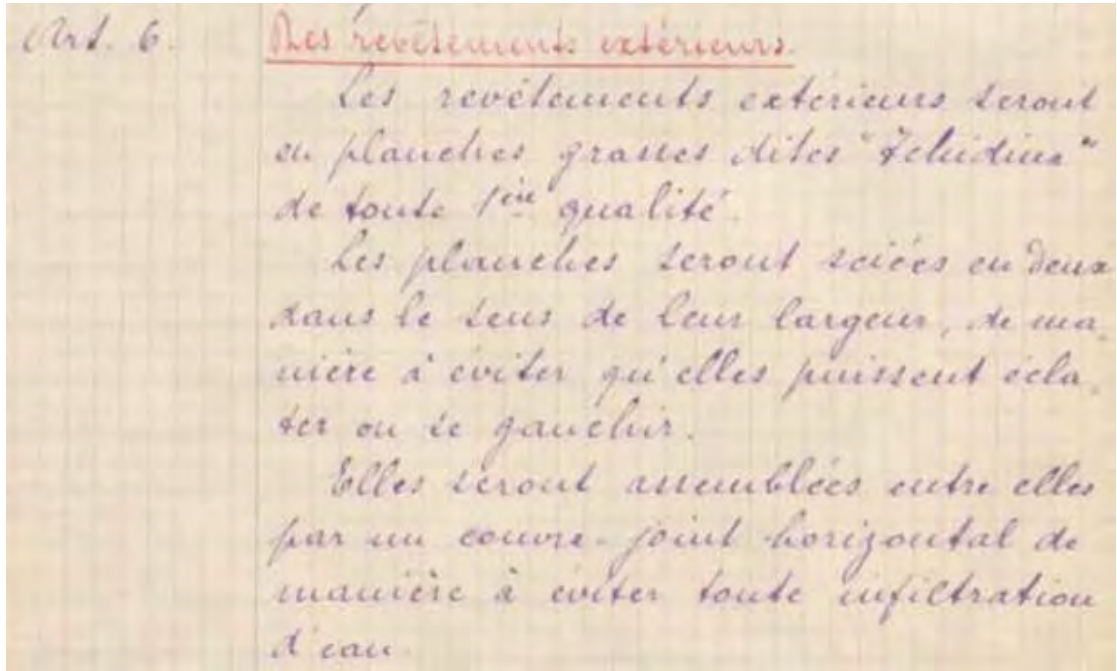 Art. 6. Des revêtements extérieurs.
Les revêtements extérieurs seront
en planches grasses dites " "
de toute 1ère qualité.
Les planches seront sciées en deux
dans le sens de leur largeur, de ma-
nière à éviter qu'elles puissent écla-
ter ou se gauchir.
Elles seront assemblées entre elles
par un couvre-joint horizontal de
manière à éviter toute infiltration
d'eau.